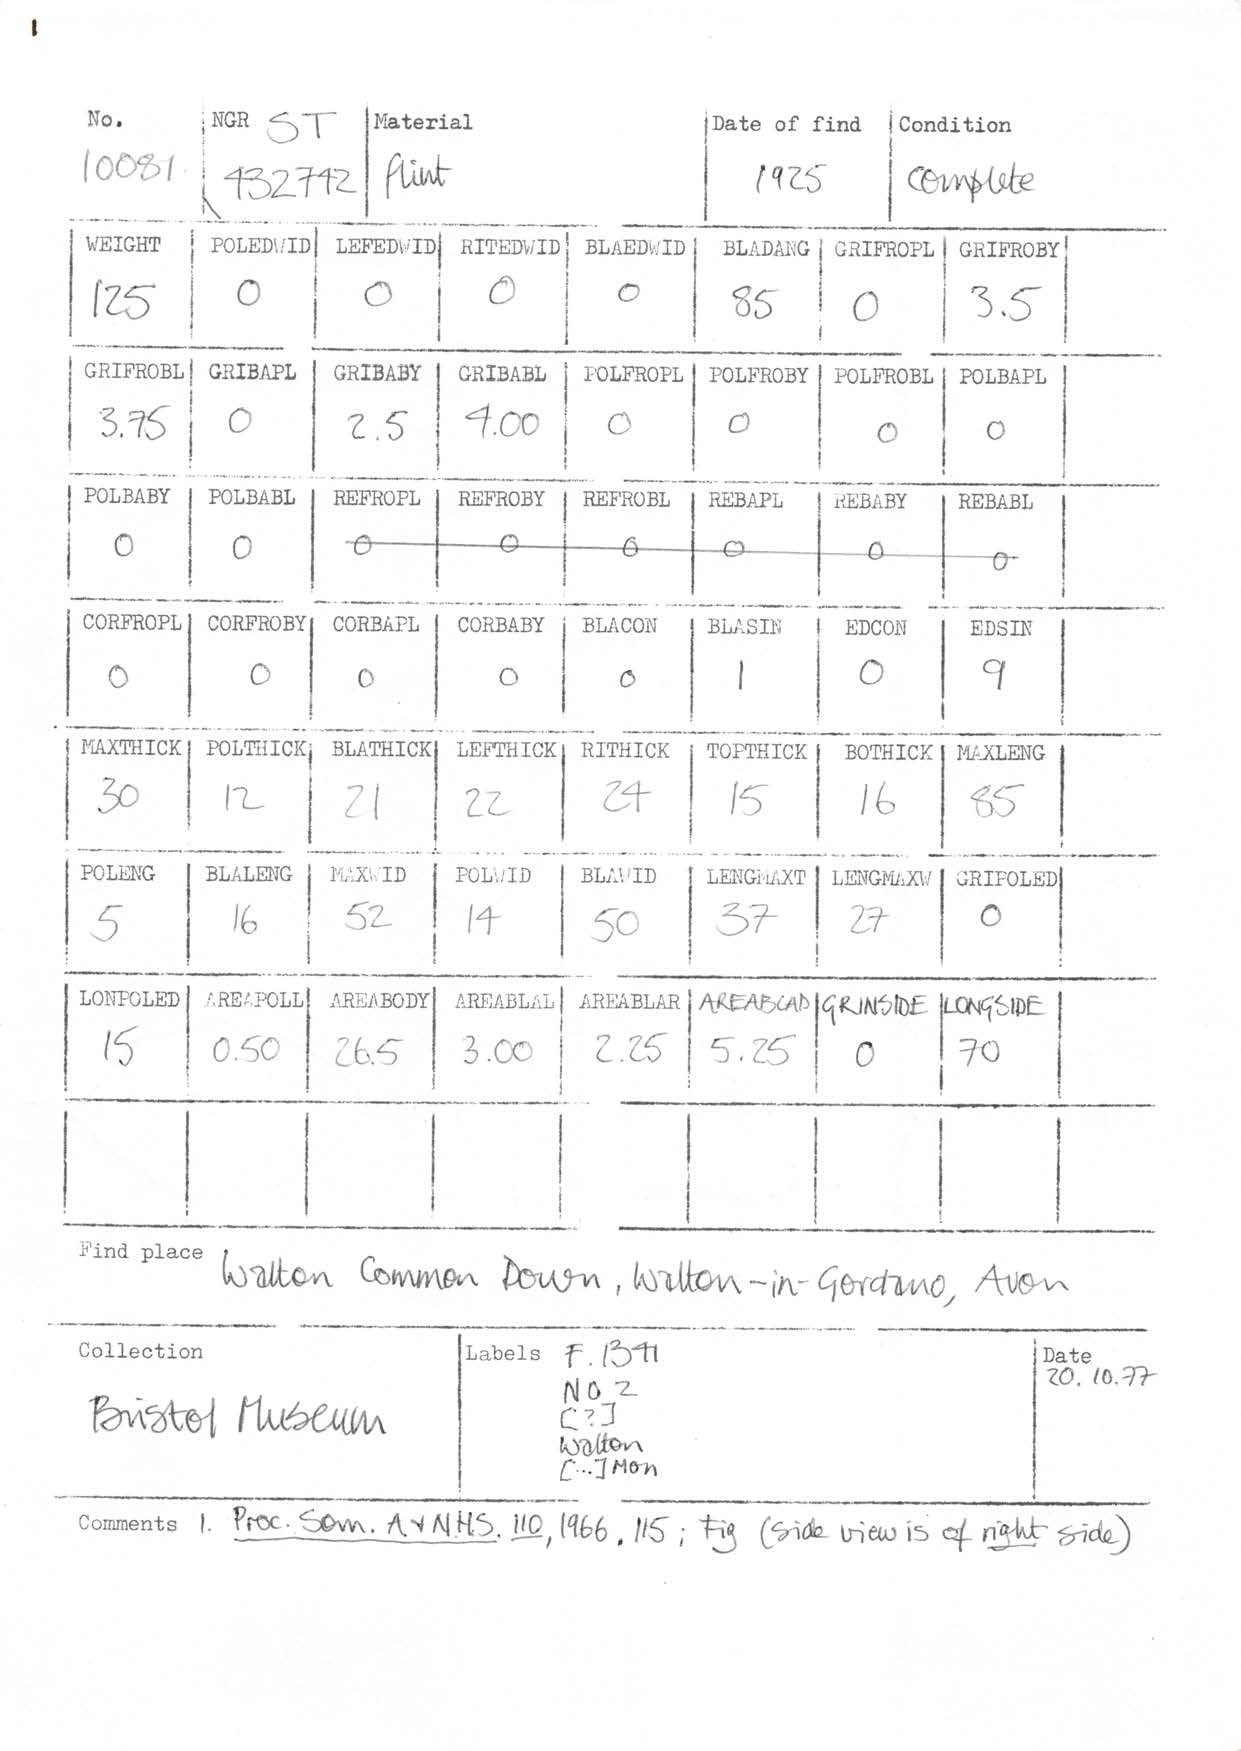 1
No. NGR ST Material Date of find Condition
10081 432742 flint 1925 complete
WEIGHT POLEDWID LEFEDWID RITEDWID BLAEDWID BLADANG GRIFROPL GRIFROBY
125 0 0 0 0 85 0 3.5
GRIFROBL GRIBAPL GRIBABY GRIBABL POLFROPL POLFROBY POLFROBL POLBAPL
3.75 0 2.5 4.00 0 0 0 0
POLBABY POLBABL REFROPL REFROBY REFROBL REBAPL REBABY REBABL
0 0 0 0 0 0 0 0
CORFROPL CORFROBY CORBAPL CORBABY BLACON BLASIN EDCON EDSIN
0 0 0 0 0 1 0 9
MAXTHICK POLTHICK BLATHICK LEFTHICK RITHICK TOPTHICK BOTHICK MAXLENG
30 12 21 22 24 15 16 85
POLENG BLALENG MAXWID POLWID BLAWID LENGMAXT LENGMAXW GRIPOLED
5 16 52 14 50 37 27 0
LONPOLED AREAPOLL AREABODY AREABLAL AREABLAR AREABLAD GRINSIDE LONGSIDE
15 0.50 26.5 3.00 2.25 5.25 0 70
Find place Walton Common Down, Walton-in-Gordano, Avon
Collection Labels F.1341 Date
20.10.77
Bristol Museum NO 2
[?]
Walton
[...]mon
Comments 1. Proc. Som. A & NHS. 110, 1966, 115; Fig (side view is of right side)